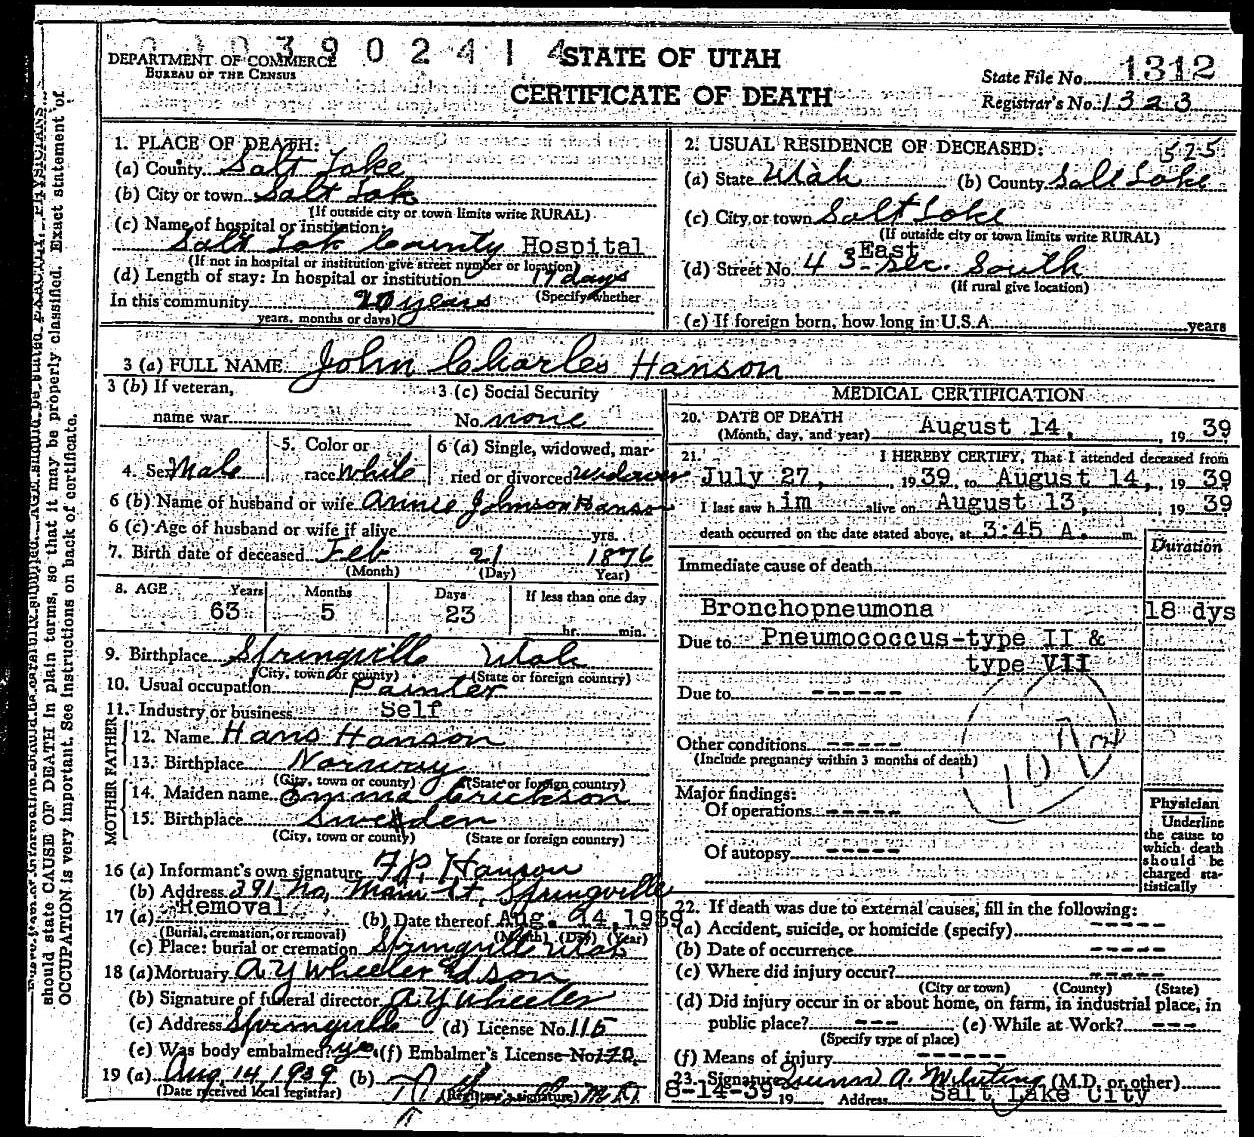 0 1 0 3 9 0 2 4 1 4
DEPARTMENT OF COMMERCE
BUREAU OF THE CENSUS
STATE OF UTAH
CERTIFICATE OF DEATH
State File No. 1312
Registrar's No. 1323
1. PLACE OF DEATH:
(a) County Salt Lake
(b) City or town Salt Lak
(If outside city or town limits write RURAL)
(c) Name of hospital or institution:
Salt Lak County Hospital
(If not in hospital or institution give street number or location)
(d) Length of stay: In hospital or institution 17 days
(Specify whether
In this community 20 years
years, months or days)
2. USUAL RESIDENCE OF DECEASED:
525
(a) State Utah (b) County Salt Lake
(c) City or town Salt Lake
(If outside city or town limits write RURAL)
East
(d) Street No. 43 - Sec. South
(If rural give location)
(e) If foreign born, how long in U.S.A. years
3 (a) FULL NAME John Charles Hanson
3 (b) If veteran,
name war
3 (c) Social Security
No. none
4. Sex Male
5. Color or
race White
6 (a) Single, widowed, mar-
ried or divorced widower
6 (b) Name of husband or wife Annie Johnson Hanson
6 (c) Age of husband or wife if alive yrs.
7. Birth date of deceased Feb 21 1876
(Month) (Day) Year)
8. AGE Years Months Days If less than one day
63 5 23 hr. min.
9. Birthplace Springville Utah
(City, town or county) (State or foreign country)
10. Usual occupation Painter
11. Industry or business Self
FATHER
12. Name Hans Hanson
13. Birthplace Norway
(City, town or county) (State or foreign country)
MOTHER
14. Maiden name Emma Erickson
15. Birthplace Sweden
(City, town or county) (State or foreign country)
16 (a) Informant's own signature F.P. Hanson
(b) Address 391 No. Main St. Springville
17 (a) Removal (b) Date thereof Aug. 14, 1939
(Burial, cremation, or removal) (Month) (Day) (Year)
(c) Place: burial or cremation Springville Utah
18 (a) Mortuary A Y Wheeler & Son
(b) Signature of funeral director A Y Wheeler
(c) Address Springville (d) License No. 115
(e) Was body embalmed? yes (f) Embalmer's License No. 170
19 (a) Aug 14 1939 (b) M.D.
(Date received local registrar) (Registrar's signature)
MEDICAL CERTIFICATION
20. DATE OF DEATH
(Month, day, and year) August 14, , 19 39
21. I HEREBY CERTIFY, That I attended deceased from
July 27, , 19 39, to August 14, , 19 39
I last saw h im alive on August 13, , 19 39
death occurred on the date stated above, at 3:45 A. m.
Duration
Immediate cause of death
Bronchopneumona 18 dys
Due to Pneumococcus-type II &
type VII
Due to ------
Other conditions -----
(Include pregnancy within 3 months of death)
107
Major findings:
Of operations -----
Of autopsy -----
Physician
Underline
the cause to
which death
should be
charged sta-
tistically
22. If death was due to external causes, fill in the following:
(a) Accident, suicide, or homicide (specify) -----
(b) Date of occurrence -----
(c) Where did injury occur? -----
(City or town) (County) (State)
(d) Did injury occur in or about home, on farm, in industrial place, in
public place? --- (e) While at Work? ---
(Specify type of place)
(f) Means of injury ------
23. Signature A. Whiting (M.D. or other)
8-14-39 19 Address Salt Lake City
should state CAUSE OF DEATH in plain terms, so that it may be properly classified. Exact statement of
OCCUPATION is very important. See instructions on back of certificate.